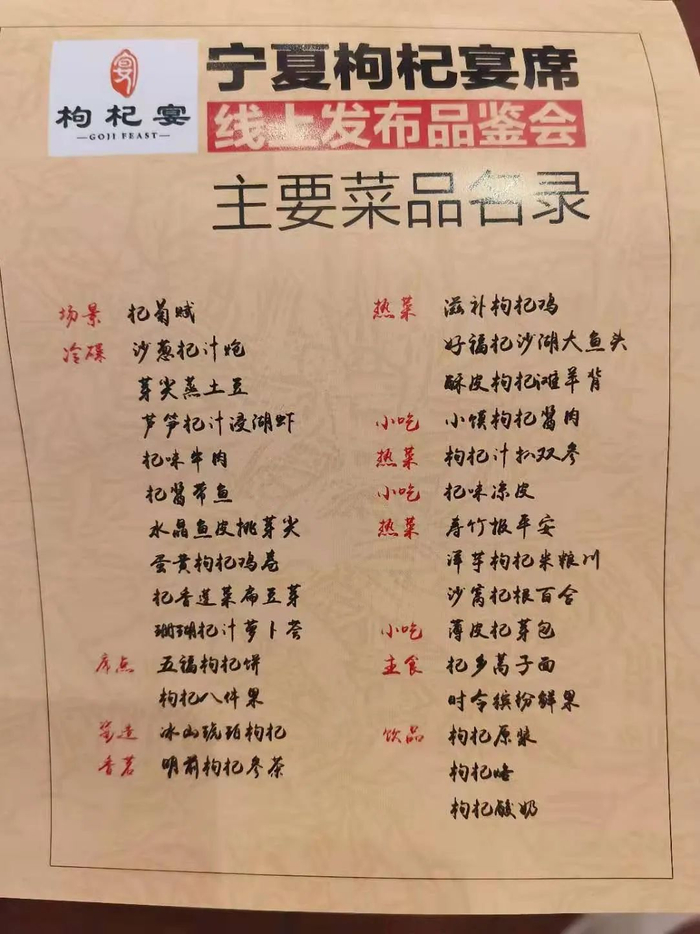 枸杞宴
GOJI FEAST
宁夏枸杞宴席
线上发布品鉴会
主要菜品名录
场景 杞菊赋
冷碟 沙葱杞汁炮
芽尖蒸土豆
芦笋杞汁浸湖虾
杞味牛肉
杞酱带鱼
水晶鱼皮挑芽尖
蛋黄枸杞鸡卷
杞香莲菜扁豆芽
珊瑚杞汁萝卜卷
席点 五福枸杞饼
枸杞八件果
冰山琥珀枸杞
香茗 明前枸杞参茶
热菜 滋补枸杞鸡
好福杞沙湖大鱼头
酥皮枸杞滩羊背
小吃 小馍枸杞酱肉
热菜 枸杞汁扒双参
小吃 杞味凉皮
热菜 寿竹报平安
洋芋枸杞米粮川
沙窝杞根百合
小吃 薄皮杞芽包
主食 杞乡蒿子面
时令缤纷鲜果
饮品 枸杞原浆
枸杞咖
枸杞酸奶